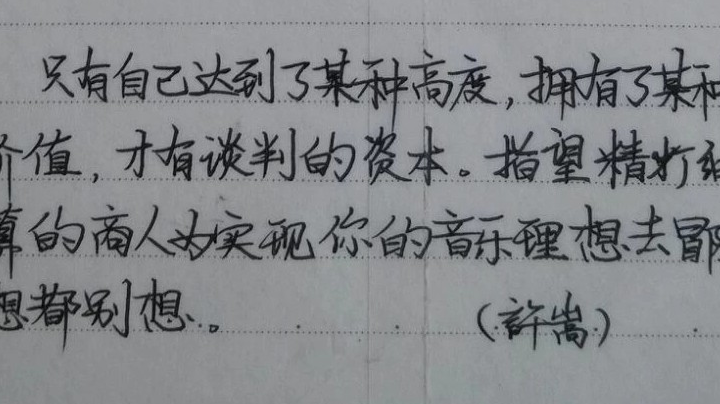 只有自己达到了某种高度，拥有了某种
价值，才有谈判的资本。指望精打细
算的商人为实现你的音乐理想去冒险
想都别想。
（許嵩）